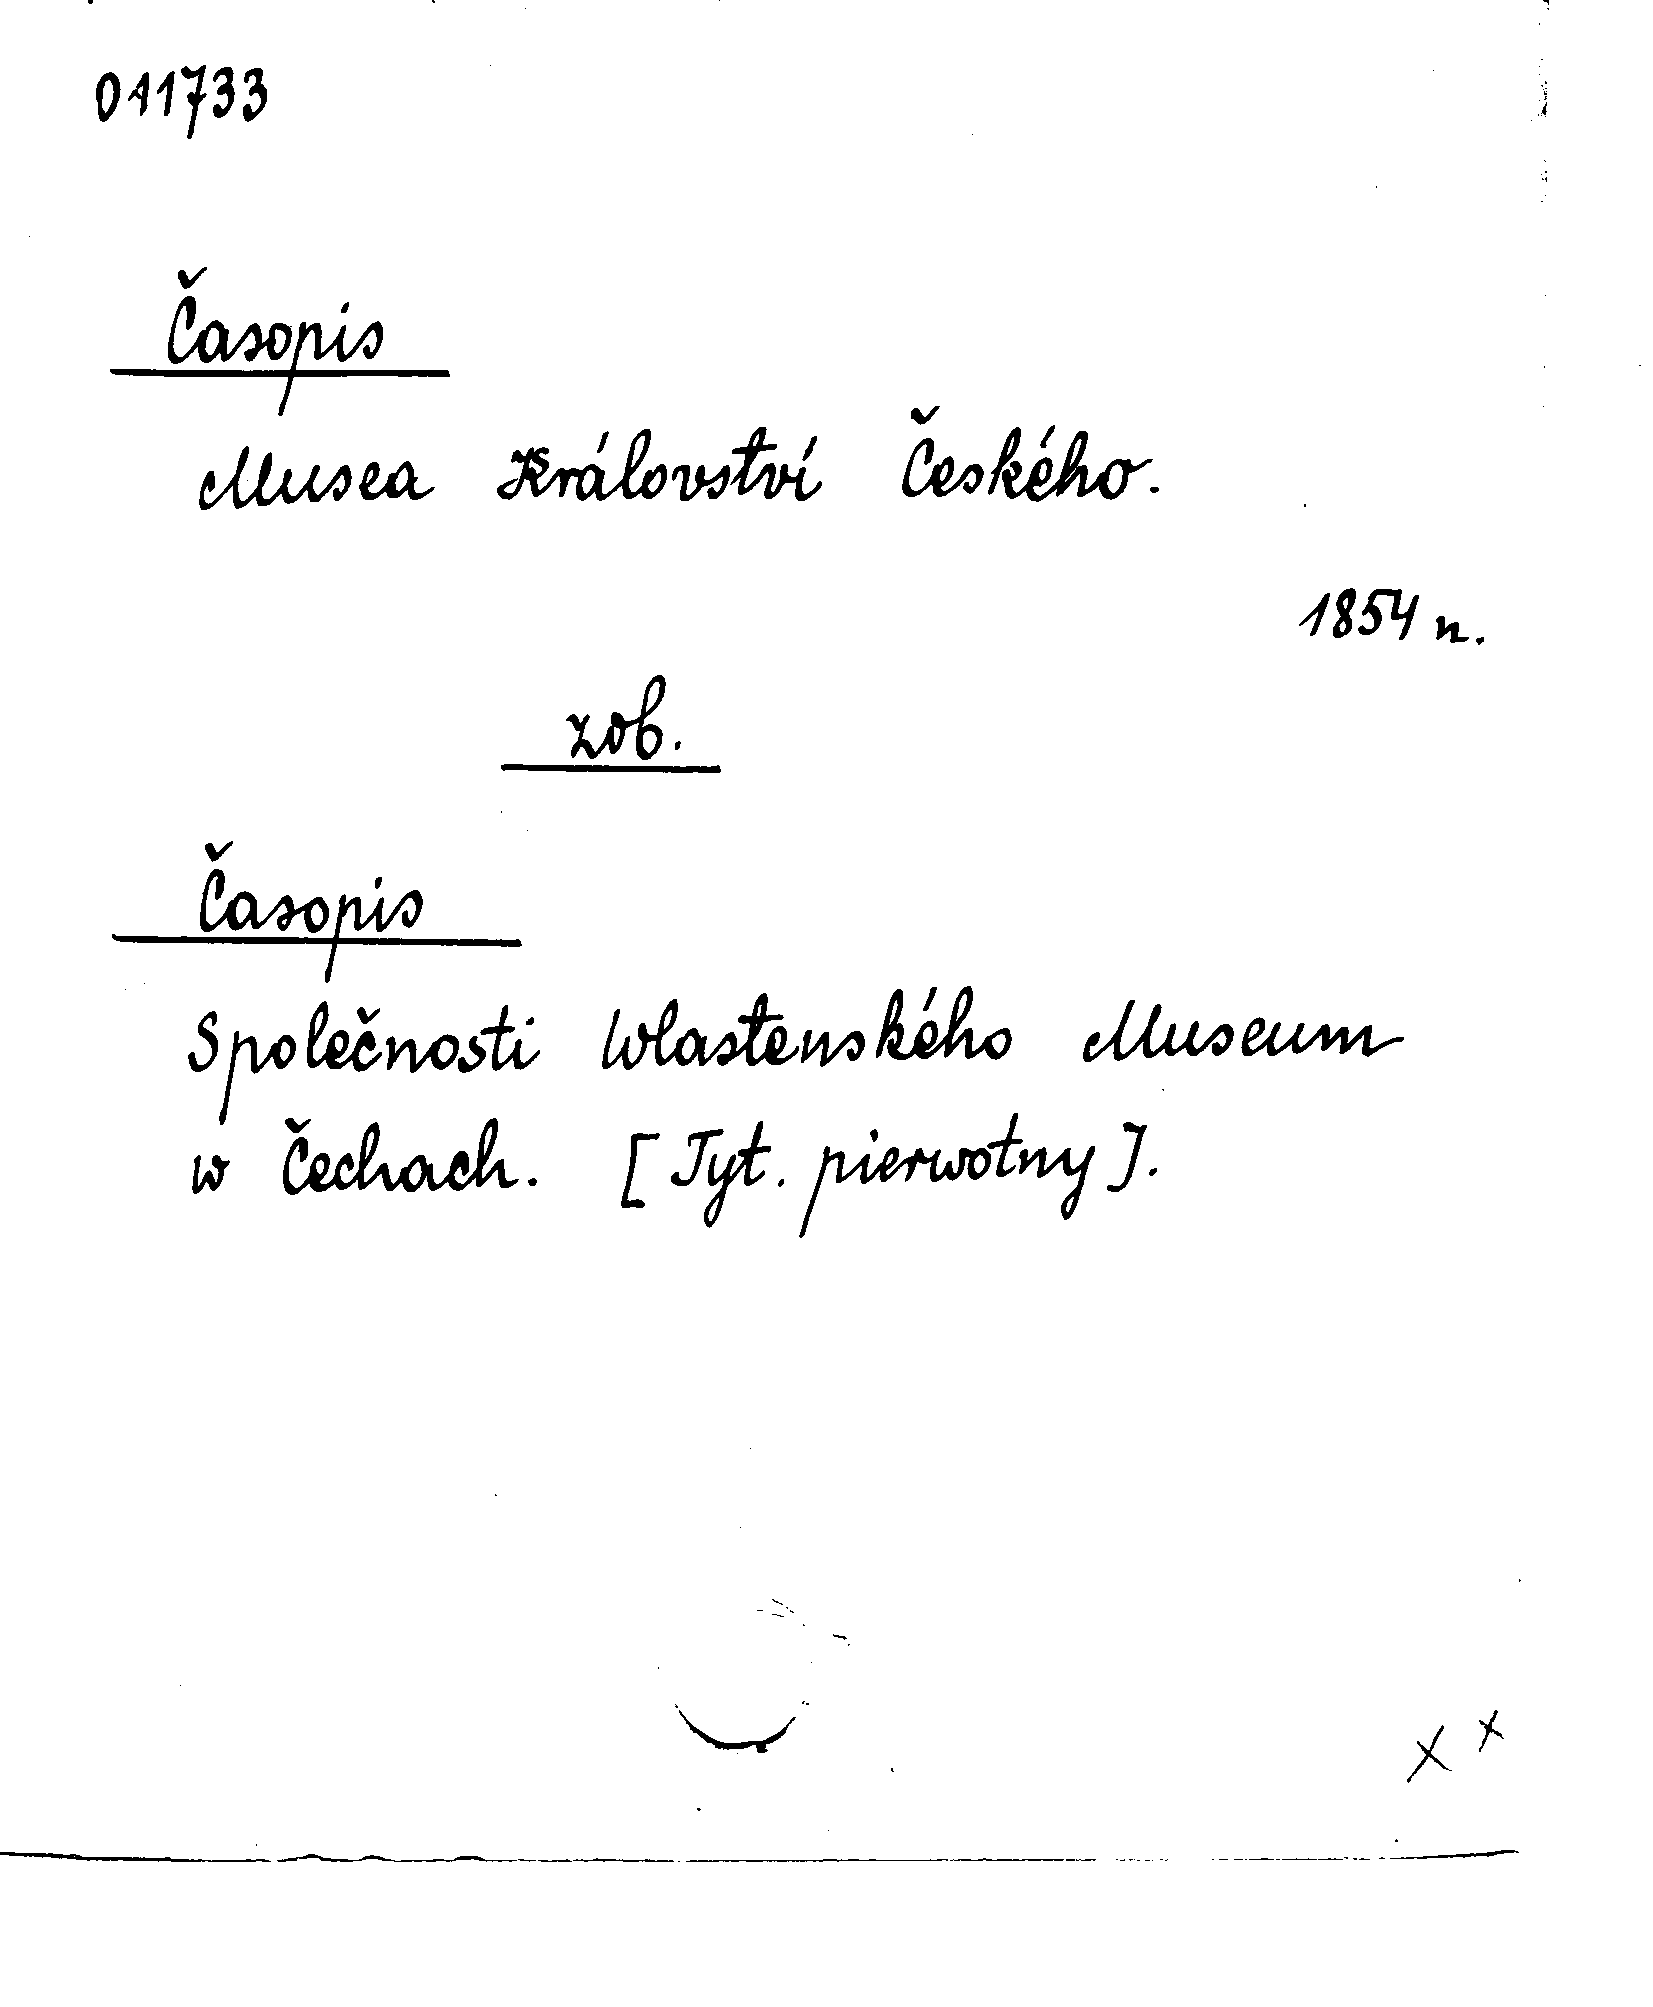 011733
Časopis
Musea Království Českého.
1854 n.
zob.
Časopis
Společnosti Wlastenského Museum
w Čechach. [Tyt. pierwotny].
x x